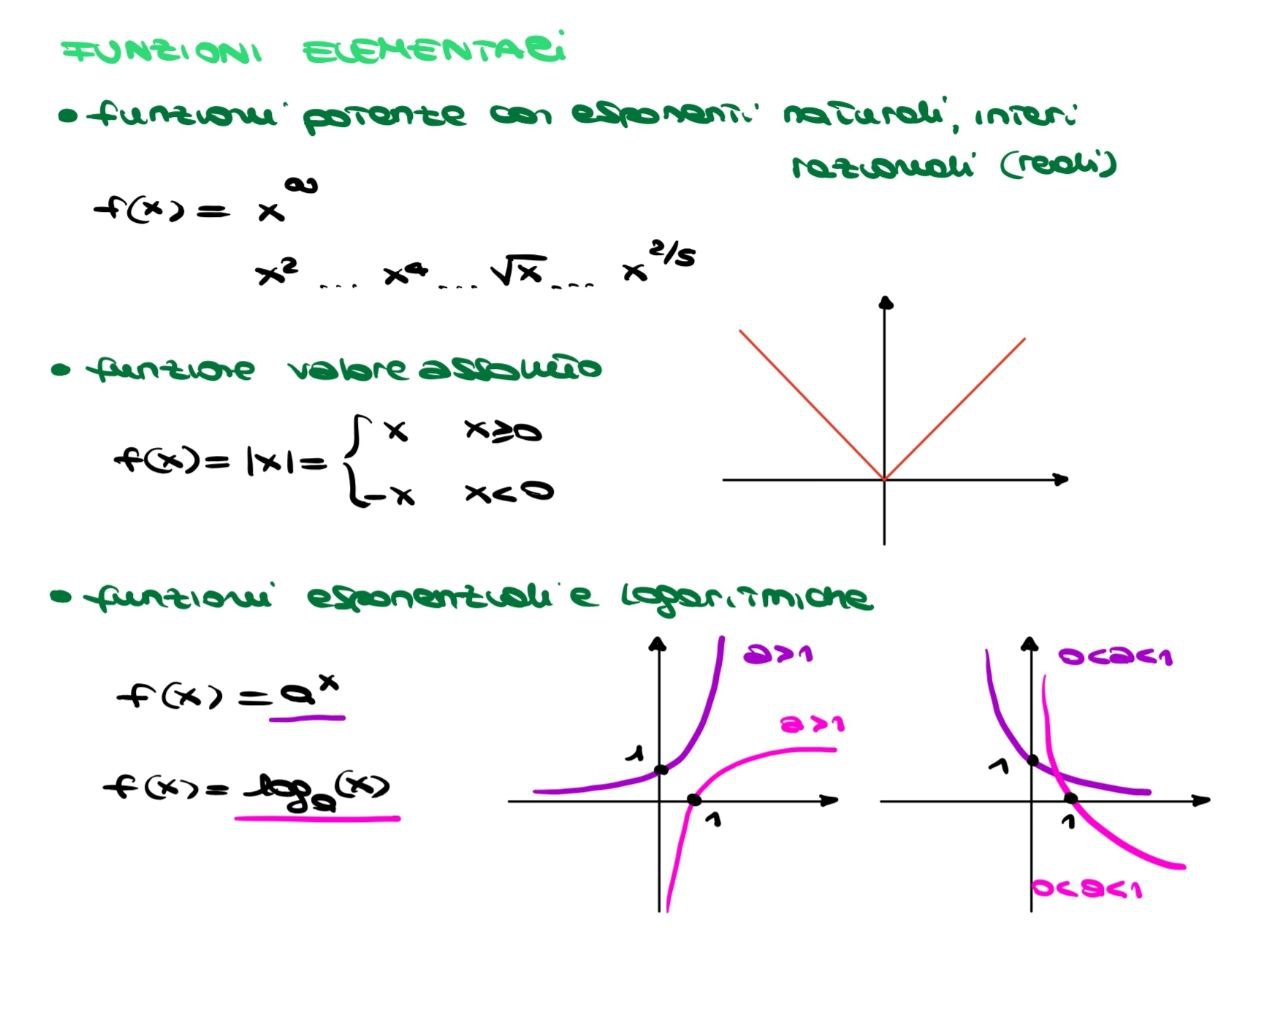 FUNZIONI ELEMENTARI
• funzioni potente con esponenti naturali, interi
razionali (reali)
f(x) = x^a
x² .... x⁴ .... √x .... x^2/5
• funzione valore assoluto
f(x) = |x| = { x x≥0
-x x<0
• funzioni esponenziali e logaritmiche
a>1
0<a<1
f(x) = a^x
a>1
1
1
f(x) = log_a(x)
1
1
0<a<1